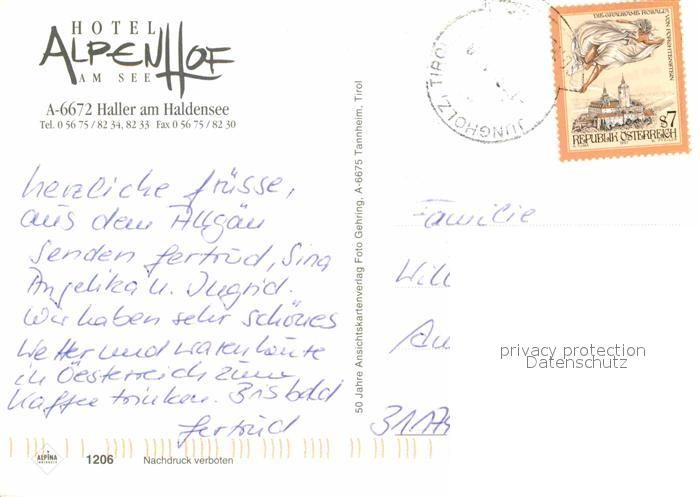 HOTEL
ALPENHOF
AM SEE
A-6672 Haller am Haldensee
Tel. 0 56 75 / 82 34, 82 33 Fax 0 56 75 / 82 30
herzliche Grüsse,
aus dem Allgäu
senden Gertrud, Sina
Angelika u. Ingrid.
Wir haben sehr schönes
Wetter und waren heute
in Öesterreich zum
Kaffee trinken. Bis bald
Gertrud
ALPINA
1206 Nachdruck verboten
50 Jahre Ansichtskartenverlag Foto Gehring, A-6675 Tannheim, Tirol
JUNGHOLZ, TIROL
VON
S7
REPUBLIK ÖSTERREICH
1997
Familie
Will
3117
privacy protection
Datenschutz